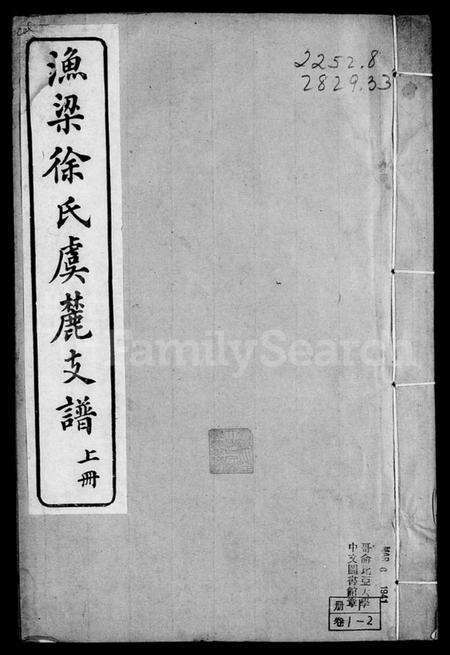 2252.8
2829.33
漁梁徐氏虞麓支譜
上冊
FamilySearch
哥倫比亞大學
中文圖書館章
MAR 6 1941
冊 1
卷 1-2